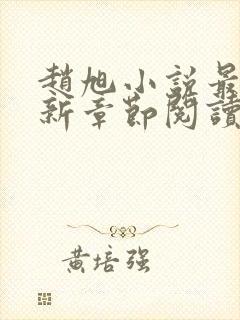 趙旭小説最
新章節閱讀
黃培强